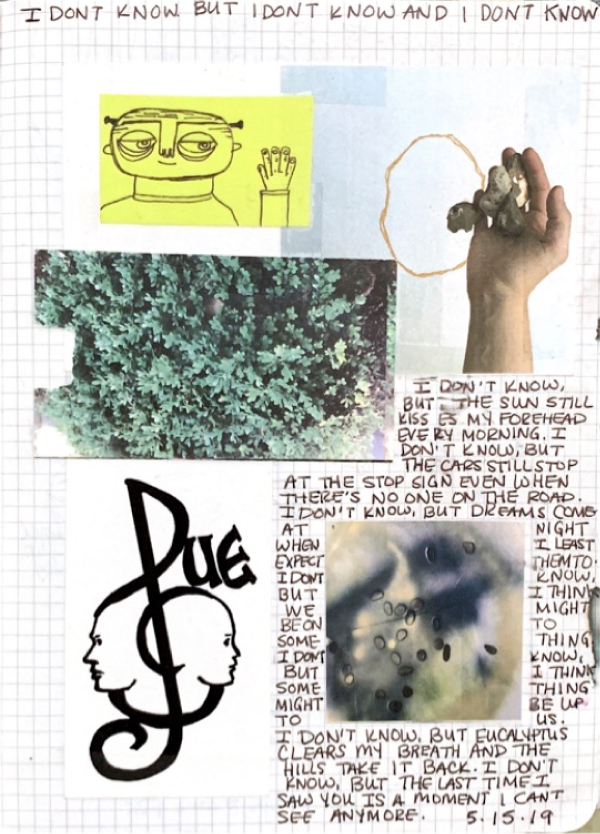 I DONT KNOW BUT I DONT KNOW AND I DONT KNOW
I DON'T KNOW,
BUT THE SUN STILL
KISSES MY FOREHEAD
EVERY MORNING. I
DON'T KNOW, BUT
THE CARS STILL STOP
AT THE STOP SIGN EVEN WHEN
THERE'S NO ONE ON THE ROAD.
I DON'T KNOW, BUT DREAMS COME
AT NIGHT
WHEN I LEAST
EXPECT THEM TO.
I DONT KNOW,
BUT I THINK
WE MIGHT
BE ON TO
SOME THING
I DONT KNOW,
BUT I THINK
SOME THING
MIGHT BE UP
TO US.
I DON'T KNOW, BUT EUCALYPTUS
CLEARS MY BREATH AND THE
HILLS TAKE IT BACK. I DON'T
KNOW, BUT THE LAST TIME I
SAW YOU IS A MOMENT I CANT
SEE ANYMORE. 5.15.19
Due